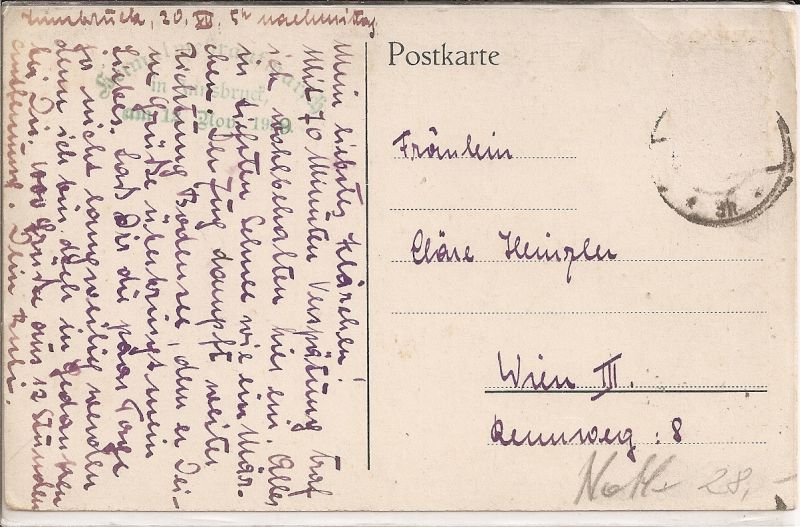 Innsbruck, 20. XII. 5h nachmittag
Mein liebstes Klärchen!
Mit 70 Minuten Verspätung traf
ich wohlbehalten hier ein. Alles
in tiefsten Schnee wie ein Mär-
chen. Der Zug dampft weiter
Richtung Bodensee, dem er Dei-
ne Grüße überbringt mein
Liebes. Laß Dir die paar Tage
so nicht langweilig werden
denn ich bin doch in Gedanken
bei Dir. wor heute aus 12 Stunden
entfernt. Dein Rudi.
in Innsbruck,
am 12. Nov. 19
Postkarte
Fräulein
Cläre Heinzler
Wien III.
Rennweg : 8
3R
28,-